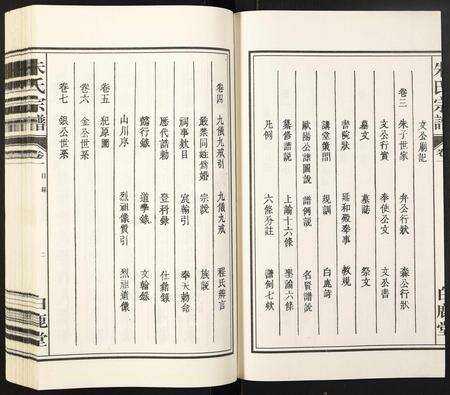 文公廟記
卷三 朱子世家 弁公行狀 森公行狀
文公行實 奉使公文 文公書
墓文 墓誌 祭文
書院狀 延和殿奏事 教規
講堂策問 規訓 白鹿詩
歐陽公譜圖說 譜例說 名賢譜說
纂修譜說 上諭十六條 聖諭六條
凡例 六條分註 譜例七款
卷四 九儀九戒引 九儀九戒 程氏辨言
嚴禁同姓爲婚 宗說 族說
祠事款目 宸翰引 奉天勅命
歷代誥勅 登科錄 仕籍錄
懿行錄 道學錄 文翰錄
山川序 烈祖像贊引 烈祖遺像
卷五 紀原圖
卷六 金公世系
卷七 銀公世系
朱氏宗譜 卷 目錄 二 白鹿堂